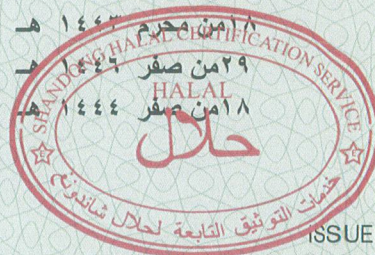 ١٨ من محرم ١٤٤٣ هـ
٢٩ من صفر ١٤٤٦ هـ
١٨ من صفر ١٤٤٤ هـ
SHANDONG HALAL CERTIFICATION SERVICE
HALAL
حلال
خدمات التوثيق التابعة لحلال شاندونغ
ISSUE